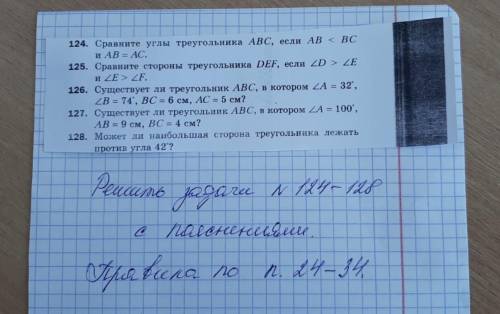 124. Сравните углы треугольника ABC, если AB < BC
и AB = AC.
125. Сравните стороны треугольника DEF, если ∠D > ∠E
и ∠E > ∠F.
126. Существует ли треугольник ABC, в котором ∠A = 32°,
∠B = 74°, BC = 6 см, AC = 5 см?
127. Существует ли треугольник ABC, в котором ∠A = 100°,
AB = 9 см, BC = 4 см?
128. Может ли наибольшая сторона треугольника лежать
против угла 42°?
Решить задачи N 124-128
с пояснениями.
Правила по п. 24-34.